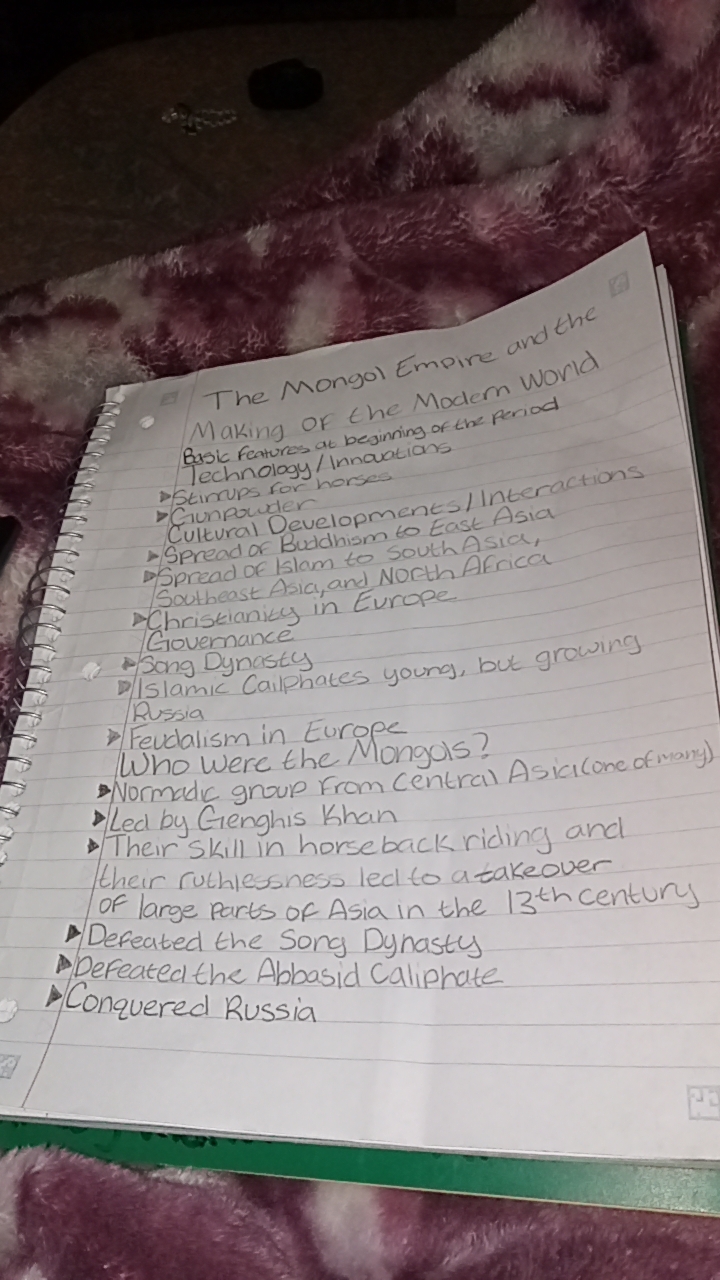 The Mongol Empire and the
Making of the Modern World
Basic features at beginning of the Period
Technology/Innovations
▶Stirrups for horses
▶Gunpowder
Cultural Developments/Interactions
▶Spread of Buddhism to East Asia
▶Spread of Islam to South Asia,
Southeast Asia, and North Africa
▶Christianity in Europe
Governance
▶Song Dynasty
▶Islamic Cailphates young, but growing
Russia
▶Feudalism in Europe
Who were the Mongols?
▶Normadic group from Central Asia (one of many)
▶Led by Genghis Khan
▶Their skill in horseback riding and
their ruthlessness led to a takeover
of large parts of Asia in the 13th century
▶Defeated the Song Dynasty
▶Defeated the Abbasid Caliphate
▶Conquered Russia